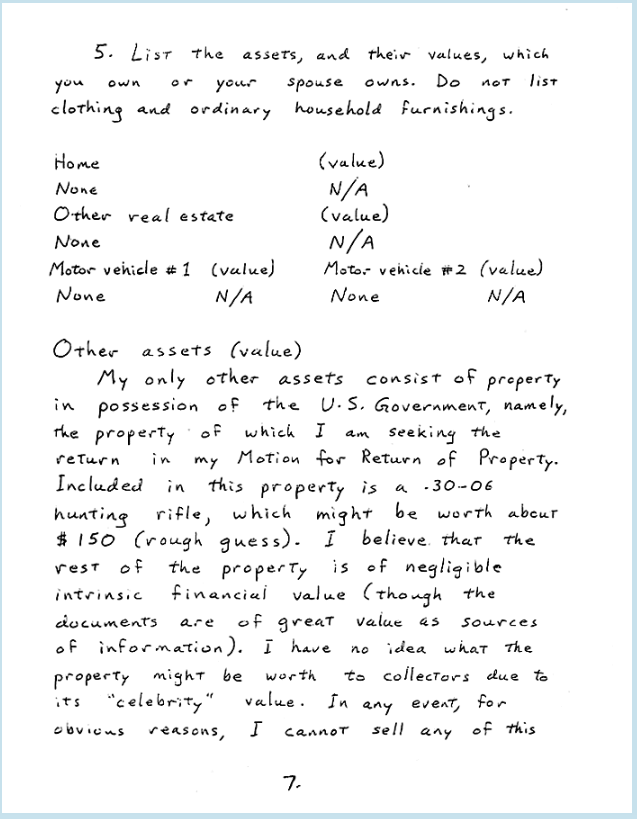 5. List the assets, and their values, which
you own or your spouse owns. Do not list
clothing and ordinary household furnishings.
Home (value)
None N/A
Other real estate (value)
None N/A
Motor vehicle #1 (value) Motor vehicle #2 (value)
None N/A None N/A
Other assets (value)
My only other assets consist of property
in possession of the U.S. Government, namely,
the property of which I am seeking the
return in my Motion for Return of Property.
Included in this property is a .30-06
hunting rifle, which might be worth about
$150 (rough guess). I believe that the
rest of the property is of negligible
intrinsic financial value (though the
documents are of great value as sources
of information). I have no idea what the
property might be worth to collectors due to
its "celebrity" value. In any event, for
obvious reasons, I cannot sell any of this
7.